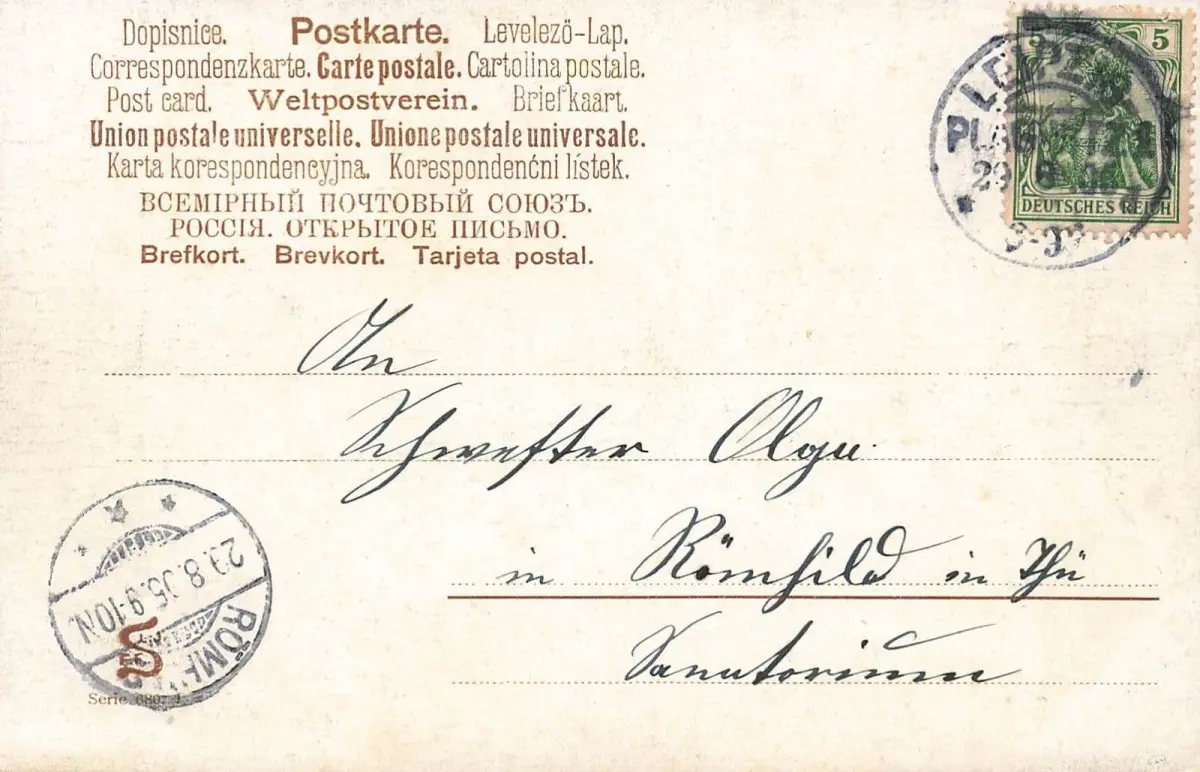 Dopisnice. Postkarte. Levelező-Lap.
Correspondenzkarte. Carte postale. Cartolina postale.
Post card. Weltpostverein. Briefkaart.
Union postale universelle. Unione postale universale.
Karta korespondencyjna. Korespondenčni lístek.
ВСЕМІРНЫЙ ПОЧТОВЫЙ СОЮЗЪ.
РОССІЯ. ОТКРЫТОЕ ПИСЬМО.
Brefkort. Brevkort. Tarjeta postal.
5 5
DEUTSCHES REICH
An
Schwester Olga
in Römhild in Thü
Sanatorium
29.8.05.9-10N.
Serie